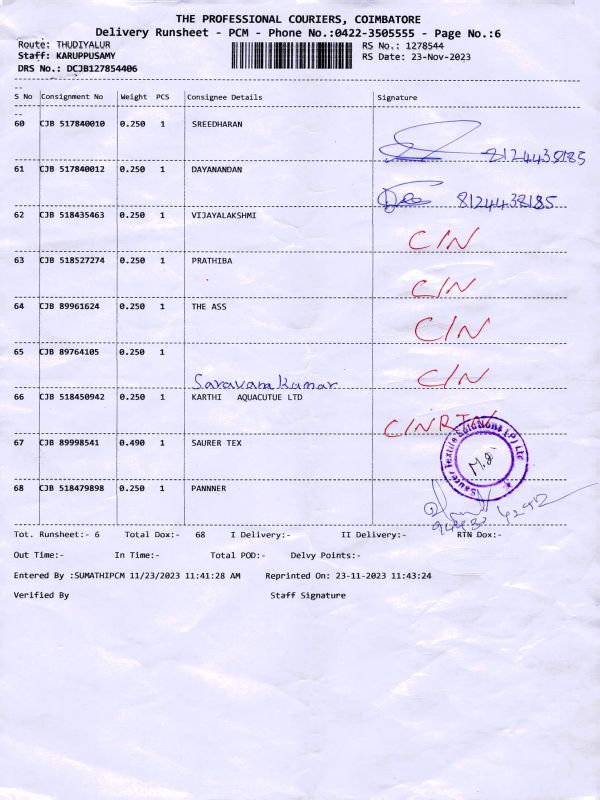 THE PROFESSIONAL COURIERS, COIMBATORE
Delivery Runsheet - PCM - Phone No.:0422-3505555 - Page No.:6
Route: THUDIYALUR RS No.: 1278544
Staff: KARUPPUSAMY RS Date: 23-Nov-2023
DRS No.: DCJB127854406
S No Consignment No Weight PCS Consignee Details Signature
60 CJB 517840010 0.250 1 SREEDHARAN
8124438185
61 CJB 517840012 0.250 1 DAYANANDAN
8124438185
62 CJB 518435463 0.250 1 VIJAYALAKSHMI
C/N
63 CJB 518527274 0.250 1 PRATHIBA
C/N
64 CJB 89961624 0.250 1 THE ASS
C/N
65 CJB 89764105 0.250 1
Saravana kumar C/N
66 CJB 518450942 0.250 1 KARTHI AQUACUTUE LTD
C/N RTN
67 CJB 89998541 0.490 1 SAURER TEX
Saurer Textile Solutions (P) Ltd
68 CJB 518479898 0.250 1 PANNNER
Tot. Runsheet:- 6 Total Dox:- 68 I Delivery:- II Delivery:- RTN Dox:-
Out Time:- In Time:- Total POD:- Delvy Points:-
Entered By :SUMATHIPCM 11/23/2023 11:41:28 AM Reprinted On: 23-11-2023 11:43:24
Verified By Staff Signature